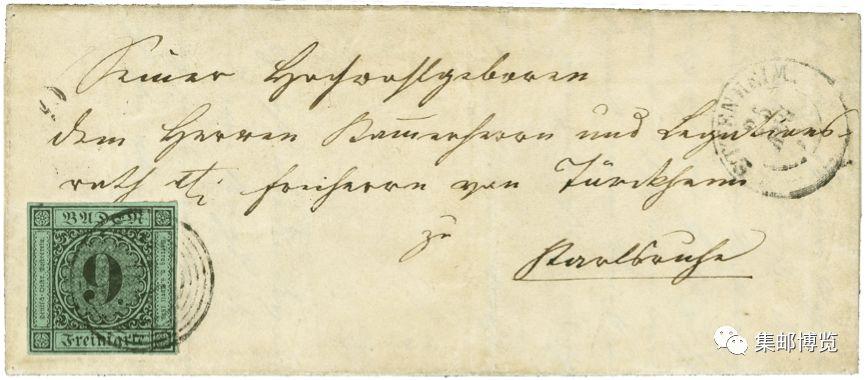 Seiner Hochwohlgeboren
dem Herren Kammerherrn und Legations-
rath Freiherrn von Türckheim
zu
Karlsruhe
BADEN
9.
Freimarke
集邮博览